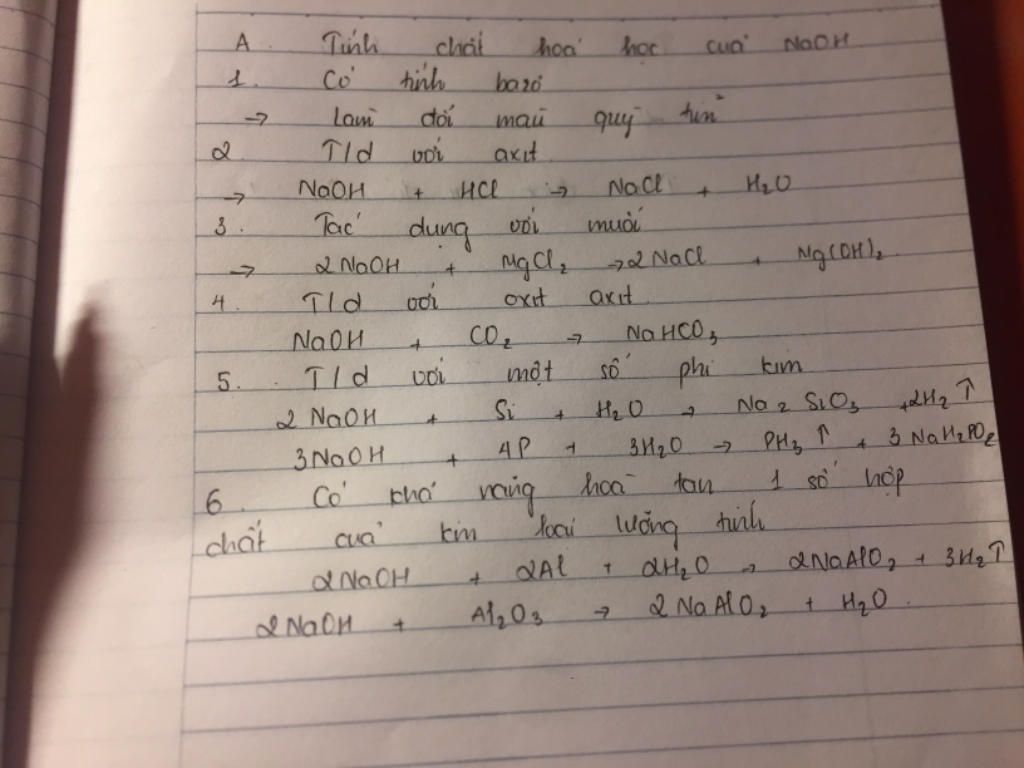 A. Tính chất hoá học của NaOH
1. Có tính bazơ
→ Làm đổi màu quỳ tím
2 T/d với axit
→ NaOH + HCl → NaCl + H₂O
3. Tác dụng với muối
→ 2NaOH + MgCl₂ → 2NaCl + Mg(OH)₂
4. T/d với oxit axit
NaOH + CO₂ → NaHCO₃
5. T/d với một số phi kim
2NaOH + Si + H₂O → Na₂SiO₃ + 2H₂↑
3NaOH + 4P + 3H₂O → PH₃↑ + 3NaH₂PO₂
6. Có khả năng hoà tan 1 số hợp
chất của kim loại lưỡng tính
2NaOH + 2Al + 2H₂O → 2NaAlO₂ + 3H₂↑
2NaOH + Al₂O₃ → 2NaAlO₂ + H₂O.